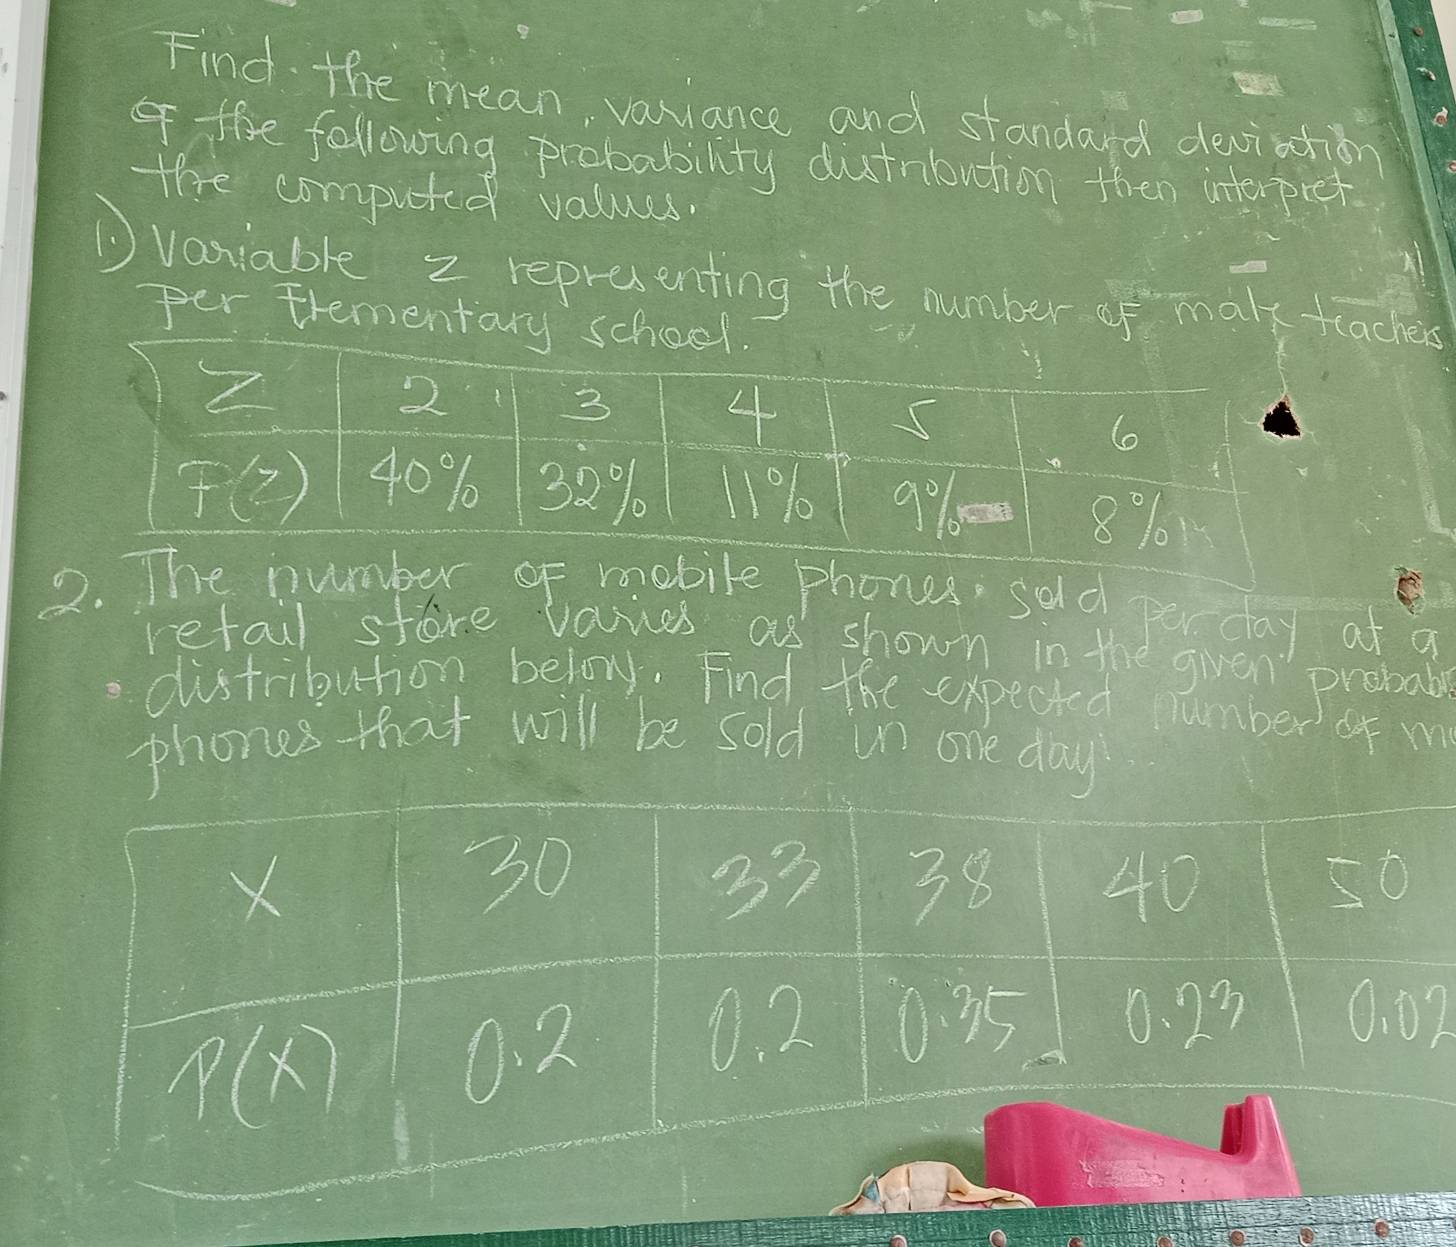 Find the mean, variance and standard deviation
of the following probability distribution then interpret
the computed values.
1.) Variable Z representing the number of male teachers
per Elementary school.
Z 2 3 4 5 6
P(Z) 40% 32% 11% 9% 8%
2. The number of mobile phones sold per day at a
retail store varies as shown in the given probabi
distribution below. Find the expected number of mo
phones that will be sold in one day.
X 30 33 38 40 50
P(X) 0.2 0.2 0.35 0.23 0.02